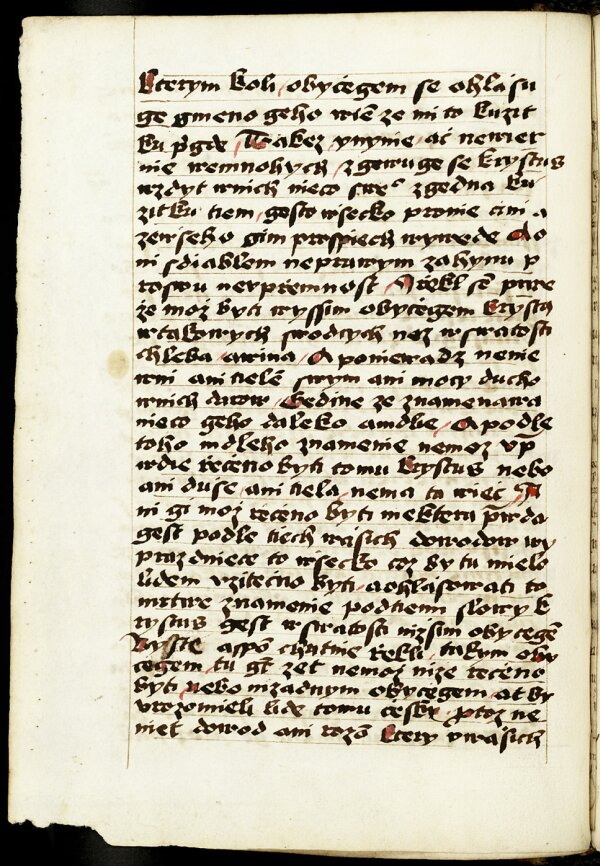 kterym koli obyčegem se ohlasu
ge gmeno geho wiē ze mi to kuzit
ku p̄gde Takez ynynie ač newier
nie wemnohych zgewuge se krystus
wzdyt wnich nieco swe° zgedna ku
zitku tiem gesto wsecko pronie čini a
zewseho gim prospiech wywede Ao
ni sdiablem neprawym zahynu p
roswu newpřemnost A řekl sē prwe
že moz byti wyssim obyčegem krysta
wtakowych swodcych nez wswatosti
chleba awina A poniewadz nenie
wni ani tielē swym ani mocy ducho
wnich darow Gedine ze znamenawa
nieco geho daleko amdlie A podle
toho mdleho znamenie nemoz vp̄
wdie řečeno byti tomu krystus nebo
ani duse ani tiela nema ta wiec A
ni gi moz řečeno byti niektera p̄wda
gest podle tiech wasich dowodow wy
prazdniece to wsecko coz by tu mielo
lidem vzitečno byti aohlasowati to
mrtwe znamenie podtiemi slowy k
rystus gest wswatosti nizsim obyčegē
Byste aspō chutnie řekli takym oby
čegem tu gt zet nemoz nize řečeno
byti nebo nizadnym obyčegem at by
vrozomieli lide tomu česky protoz ne
niet dowod ani rozō ktery wwasich